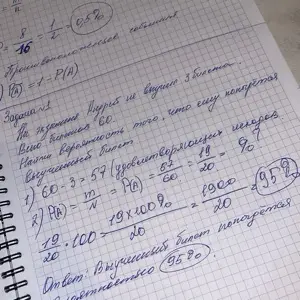 = 8/16 = 1/2 = 0,5%
Противоположные события
P(A) = 1 - P(A)
Задача №1
На экзамене Андрей не выучил 3 билета.
Всего билетов 60.
Найти вероятность того, что ему попадётся
выученный билет
1) 60 - 3 = 57 (удовлетворяющих исходов
2) P(A) = m/N = P(A) = 57/60 = 19/20 = %?
19/20 · 100 = 19×100%/20 = 1900/20 = 95%
Ответ: Выученный билет попадётся
вероятностью 95%.